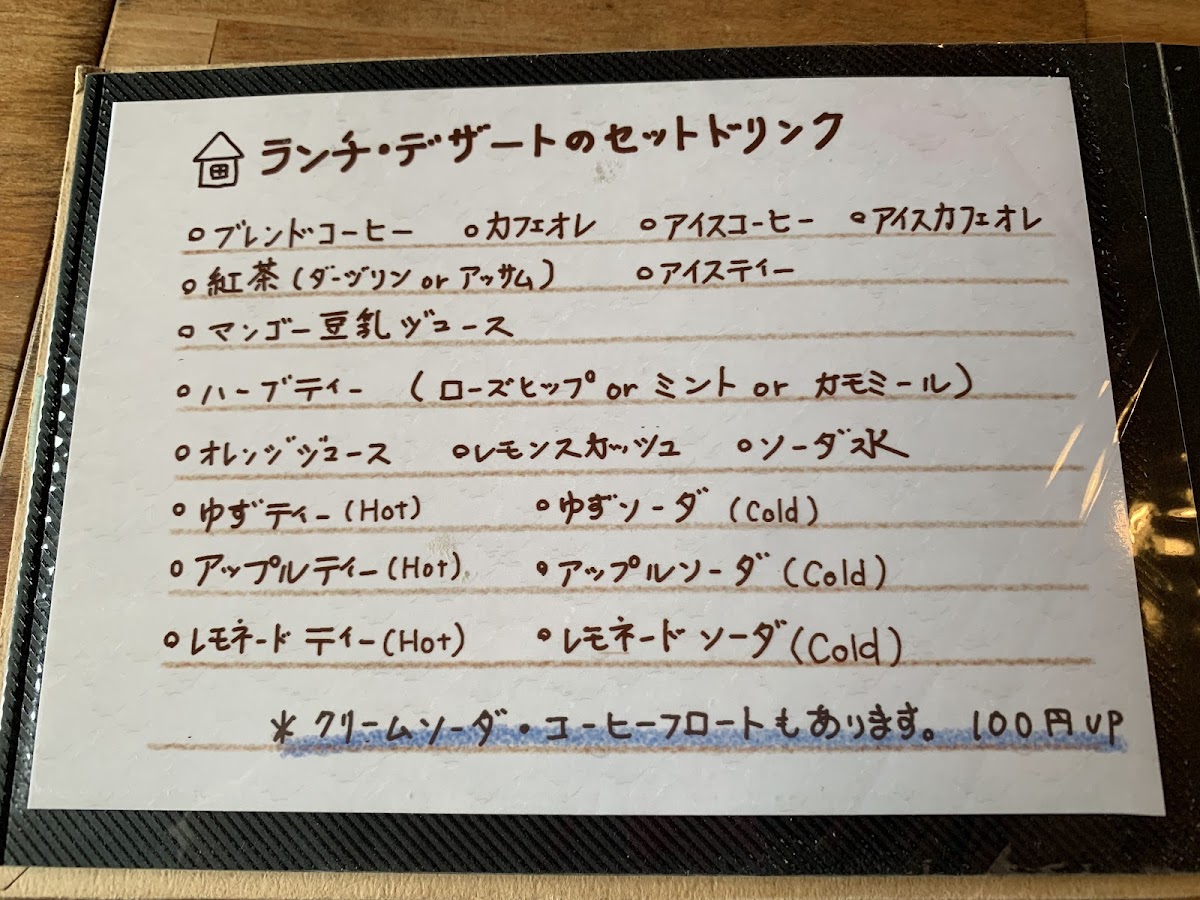 ランチ・デザートのセットドリンク
○ブレンドコーヒー ○カフェオレ ○アイスコーヒー ○アイスカフェオレ
○紅茶(ダージリン or アッサム) ○アイスティー
○マンゴー豆乳ジュース
○ハーブティー (ローズヒップ or ミント or カモミール)
○オレンジジュース ○レモンスカッシュ ○ソーダ水
○ゆずティー(Hot) ○ゆずソーダ (Cold)
○アップルティー(Hot) ○アップルソーダ(Cold)
○レモネードティー(Hot) ○レモネードソーダ(Cold)
*クリームソーダ・コーヒーフロートもあります。100円UP